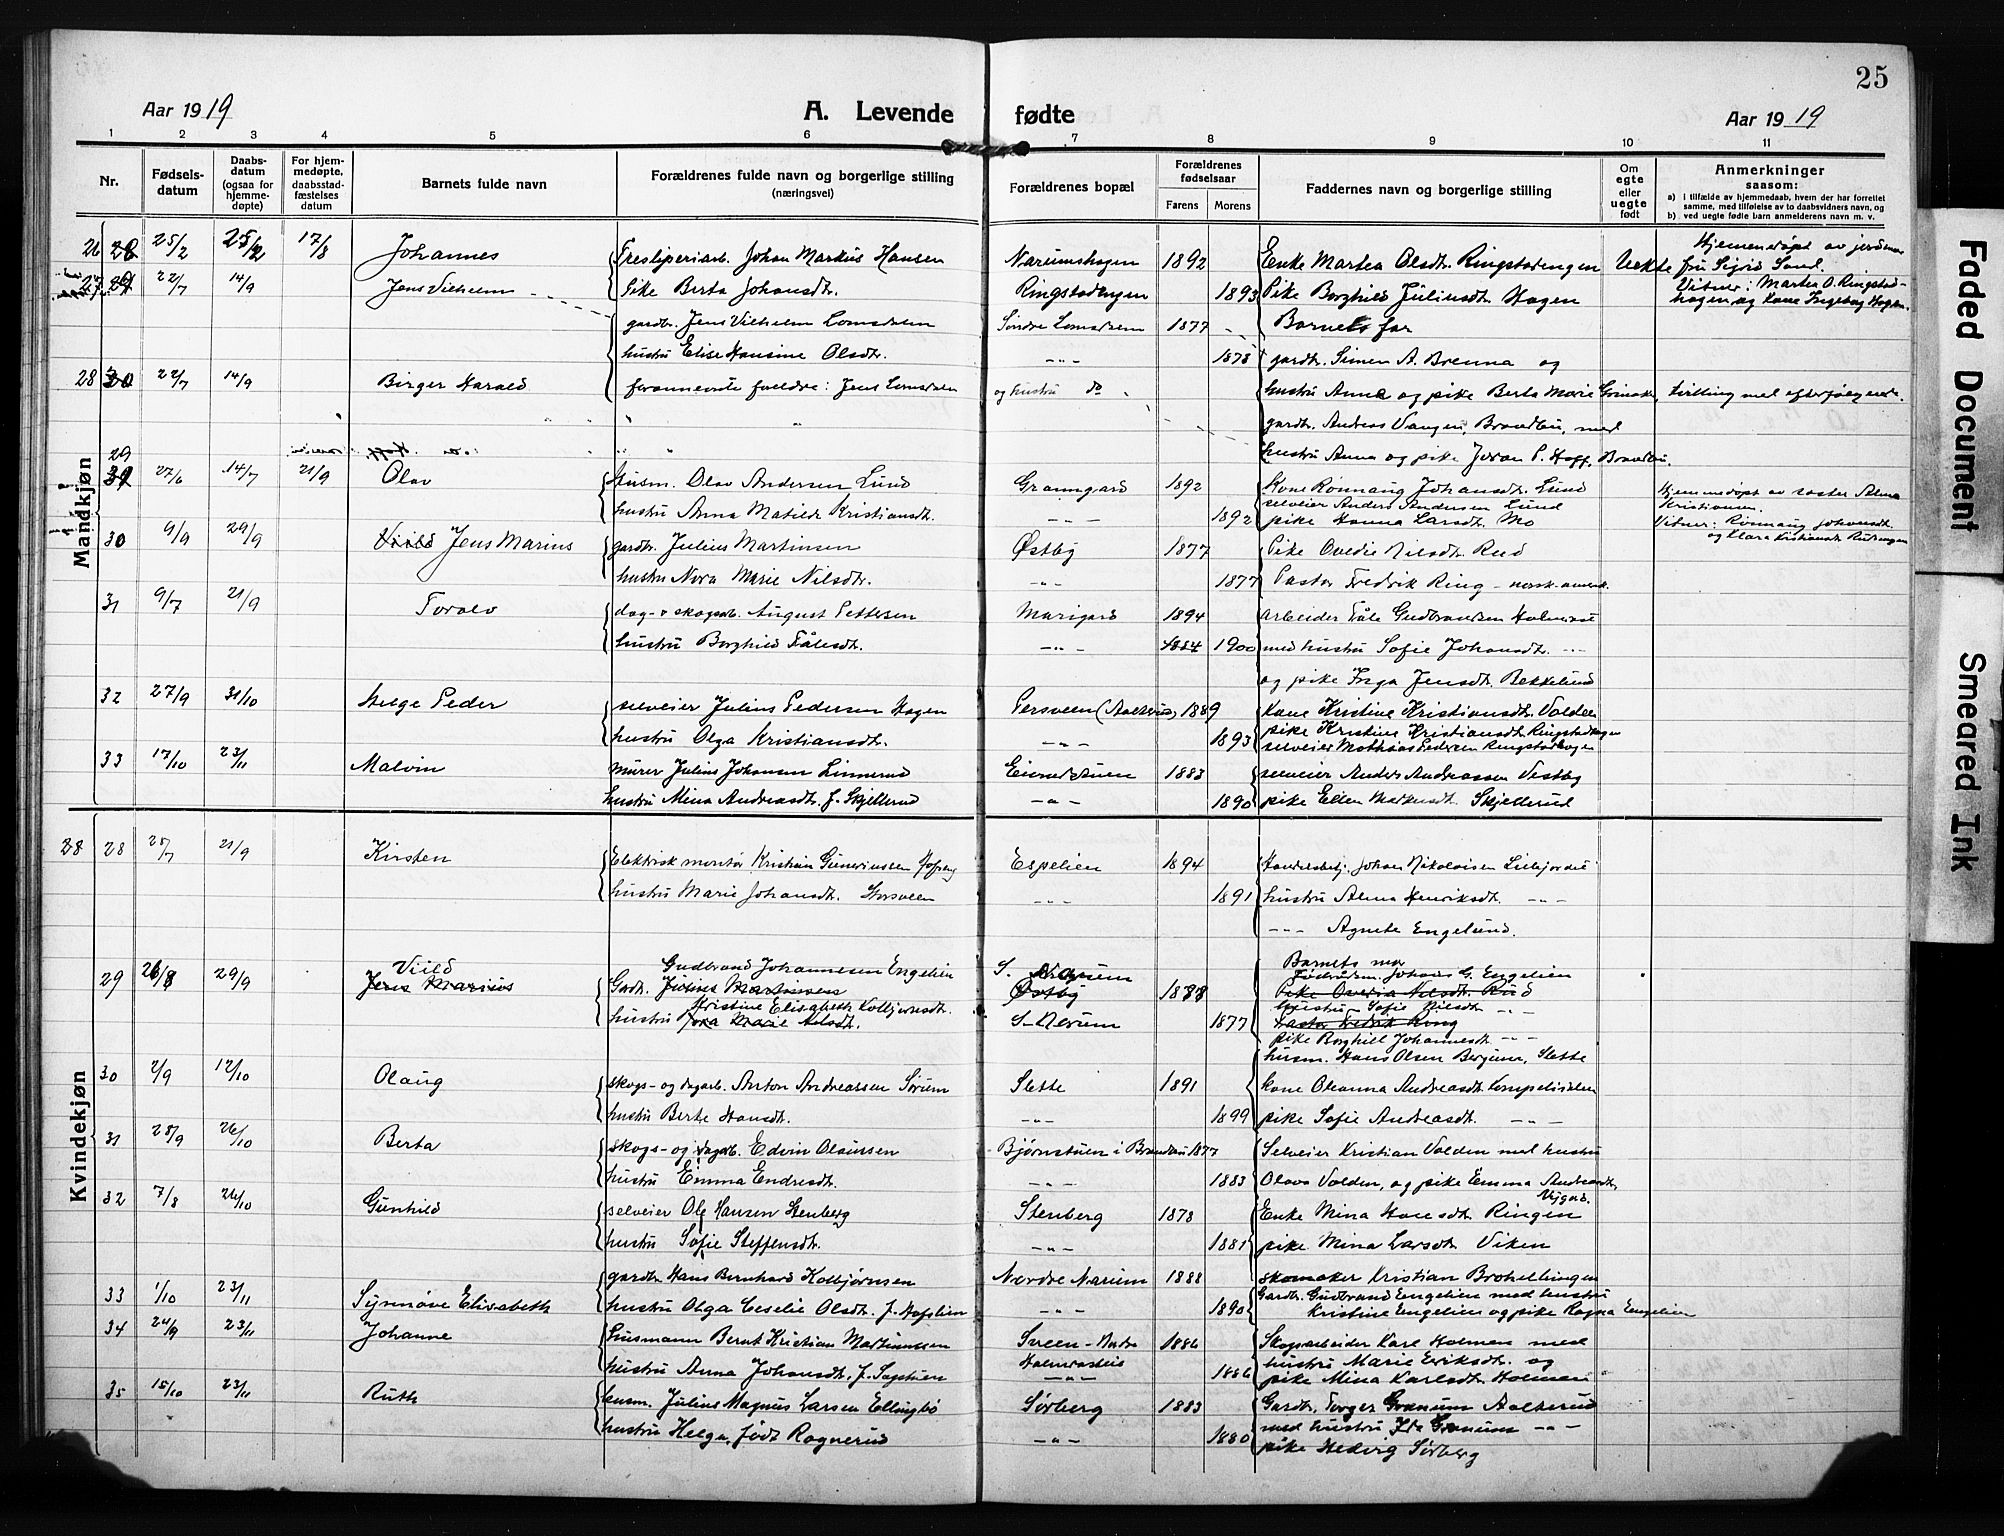 25
Aar 1919 A. Levende fødte Aar 1919
1 2 3 4 5 6 7 8 9 10 11
Nr. Fødsels-datum Daabs-datum (ogsaa for hjemme-døpte) For hjem-medøpte, daabsstad-fæstelses datum Barnets fulde navn Forældrenes fulde navn og borgerlige stilling (næringsvei) Forældrenes bopæl Forældrenes fødselsaar Farens Morens Faddernes navn og borgerlige stilling Om egte eller uegte født Anmerkninger saasom:
a) i tilfælde av hjemmedaab, hvem der har forrettet samme, med tilføielse av to daabsvidners navn, og
b) ved uegte fødte barn anmelderens navn m. v.
Mandkjøn
26 25/2 25/2 17/8 Johannes Johan Markus Hansen Narumshagen 1892 Enke Martea Olsdt. Ringstadengen Uekte Hjemmedøpt av jordmor
fru Sigrid Sand.
27 22/7 14/9 Jens Vilhelm Pike Berta Johansdt. Ringstadengen 1893 Pike Borghild Juliusdt. Hagen Vitner: Martea O. Ringstad-
hagen og kone Ingeborg Hagen.
gardbr. Jens Vilhelm Lomsdalen Søndre Lomsdalen 1877 Barnets far
hustru Elise Hansine Olsdt. -"- 1878 gardbr. Simen A. Brenna og
28 30 22/7 14/9 Birger Harald forannevnte foreldre: Jens Lomsdalen og hustru do hustru Anna og pike Berta Marie tvilling med efterfølgende.
gardbr. Andreas Vangen, Brandbu, med
hustru Anna og pike Joran P. Hoff, Brandbu.
29 31 27/6 14/7 21/9 Olav Husm. Olav Andersen Lund Granngard 1892 Kone Rønnaug Johansdt. Lund Hjemmedøpt av søster Alma
selveier Anders Andersen Lund Kristiansen.
hustru Anna Matilde Kristiansdt. -"- 1892 pike Hanna Larsdt. Mo Vitner: Rønnaug Johansdt.
30 9/9 29/9 Jens Marius gardbr. Julius Martinsen Østby 1877 Pike Ovedie Nilsdt. Rud
hustru Nora Marie Nilsdtr. -"- 1877 Pastor Fredrik Ring - norsk-amerik.
31 9/7 21/9 Toralv dag- & skogsarb. August Pettersen Marigard 1894 arbeider Påle Gudbrandsen
hustru Borghild Pålesdt. -"- 1884 1900 med hustru Sofie Johansdt. -"-
og pike Inga Jensdt. Bekkelund
32 27/9 31/10 Helge Peder selveier Julius Pedersen Hagen Persveen 1889 Kone Kristine Kristiansdt. Volden
hustru Olga Kristiansdt. -"- 1893 pike Kristine Kristiansdt. Ringstadhagen
selveier Mathias Pedersen Ringstadhagen
33 17/10 23/11 Malvin murer Julius Johansen Linnerud 1883 selveier Anders Andreassen Vestby
hustru Mina Andreasdt. f. Skjellerud -"- 1890 pike Ellen Markusdt. Skjellerud
Kvindekjøn
28 28 21/9 Kirsten Elektrisk montør Kristian Gunerius­sen Espelien 1894 Johan Nikolaisen Lillejordet
hustru Marie Johansdt. Storsveen -"- 1891 hustru Alma Henriksdt. -"-
-"- Agnete Engelund.
29 26/8 29/9 Viild Jens Marius Gardbr. Gudbrand Johannesen Engelien Julius Martinsen S. Narum Østby 1888 Barnets mor
Johans G. Engelien
Pike Ovedia Nilsdt. Rud
hustru Sofie Nilsdt. -"-
hustru Kristine Elisabeth Kolbjørnsdt. Nora Marie Nilsdt. S. Narum 1877 Pastor Fredrik Ring
pike Borghill Johannesdt. -"-
husm. Hans Olsen Slette
30 2/9 12/10 Olaug skogs- og dagarb. Anton Andreassen Sørum Slette 1891 kone Oleanna Andreasdt.
hustru Berte Hansdt. -"- 1899 pike Sofie Andreasdt. -"-
31 28/9 26/10 Berta skogs- og dagarb. Edvin Olaussen Bjørnstuen i Brandbu 1877 Selveier Kristian Volden med hustru
hustru Emma Endresdt. -"- 1883 Olava Volden, og pike Emma Andreasdt.
32 7/8 26/10 Gunhild selveier Ole Hansen Stenberg Stenberg 1878 Enke Mina Hansdt. Ringen
hustru Sofie Steffensdt. -"- 1881 pike Mina Larsdt. Viken
33 1/10 23/11 Synnøve Elisabeth gardbr. Hans Bernhard Kolbjørnsen Nordre Narum 1888 skomaker Kristian
Gardbr. Gudbrand Engelien med hustru
hustru Olga Ceselie Olsdt. f. Hofslien -"- 1890 Kristine Engelien og pike Ragna Engelien
34 24/9 23/11 Johanne husmann Bernt Kristian Martinussen Sveen - 1886 Skogsarbeider Karl Holmen med
hustru Anna Johansdt. f. Sagstuen -"- 1886 hustru Marie Eriksdt. og
pike Mina Karlsdt. Holmen
35 15/10 23/11 Ruth husm. Julius Magnus Larsen Ellingbø Sørberg 1883 Gardbr. Torger Granum Aaslerud
hustru Helga, født Ragnerud -"- 1880 med hustru Ida Granum -"-
pike Hedvig Sørberg
Faded Document
Smeared Ink